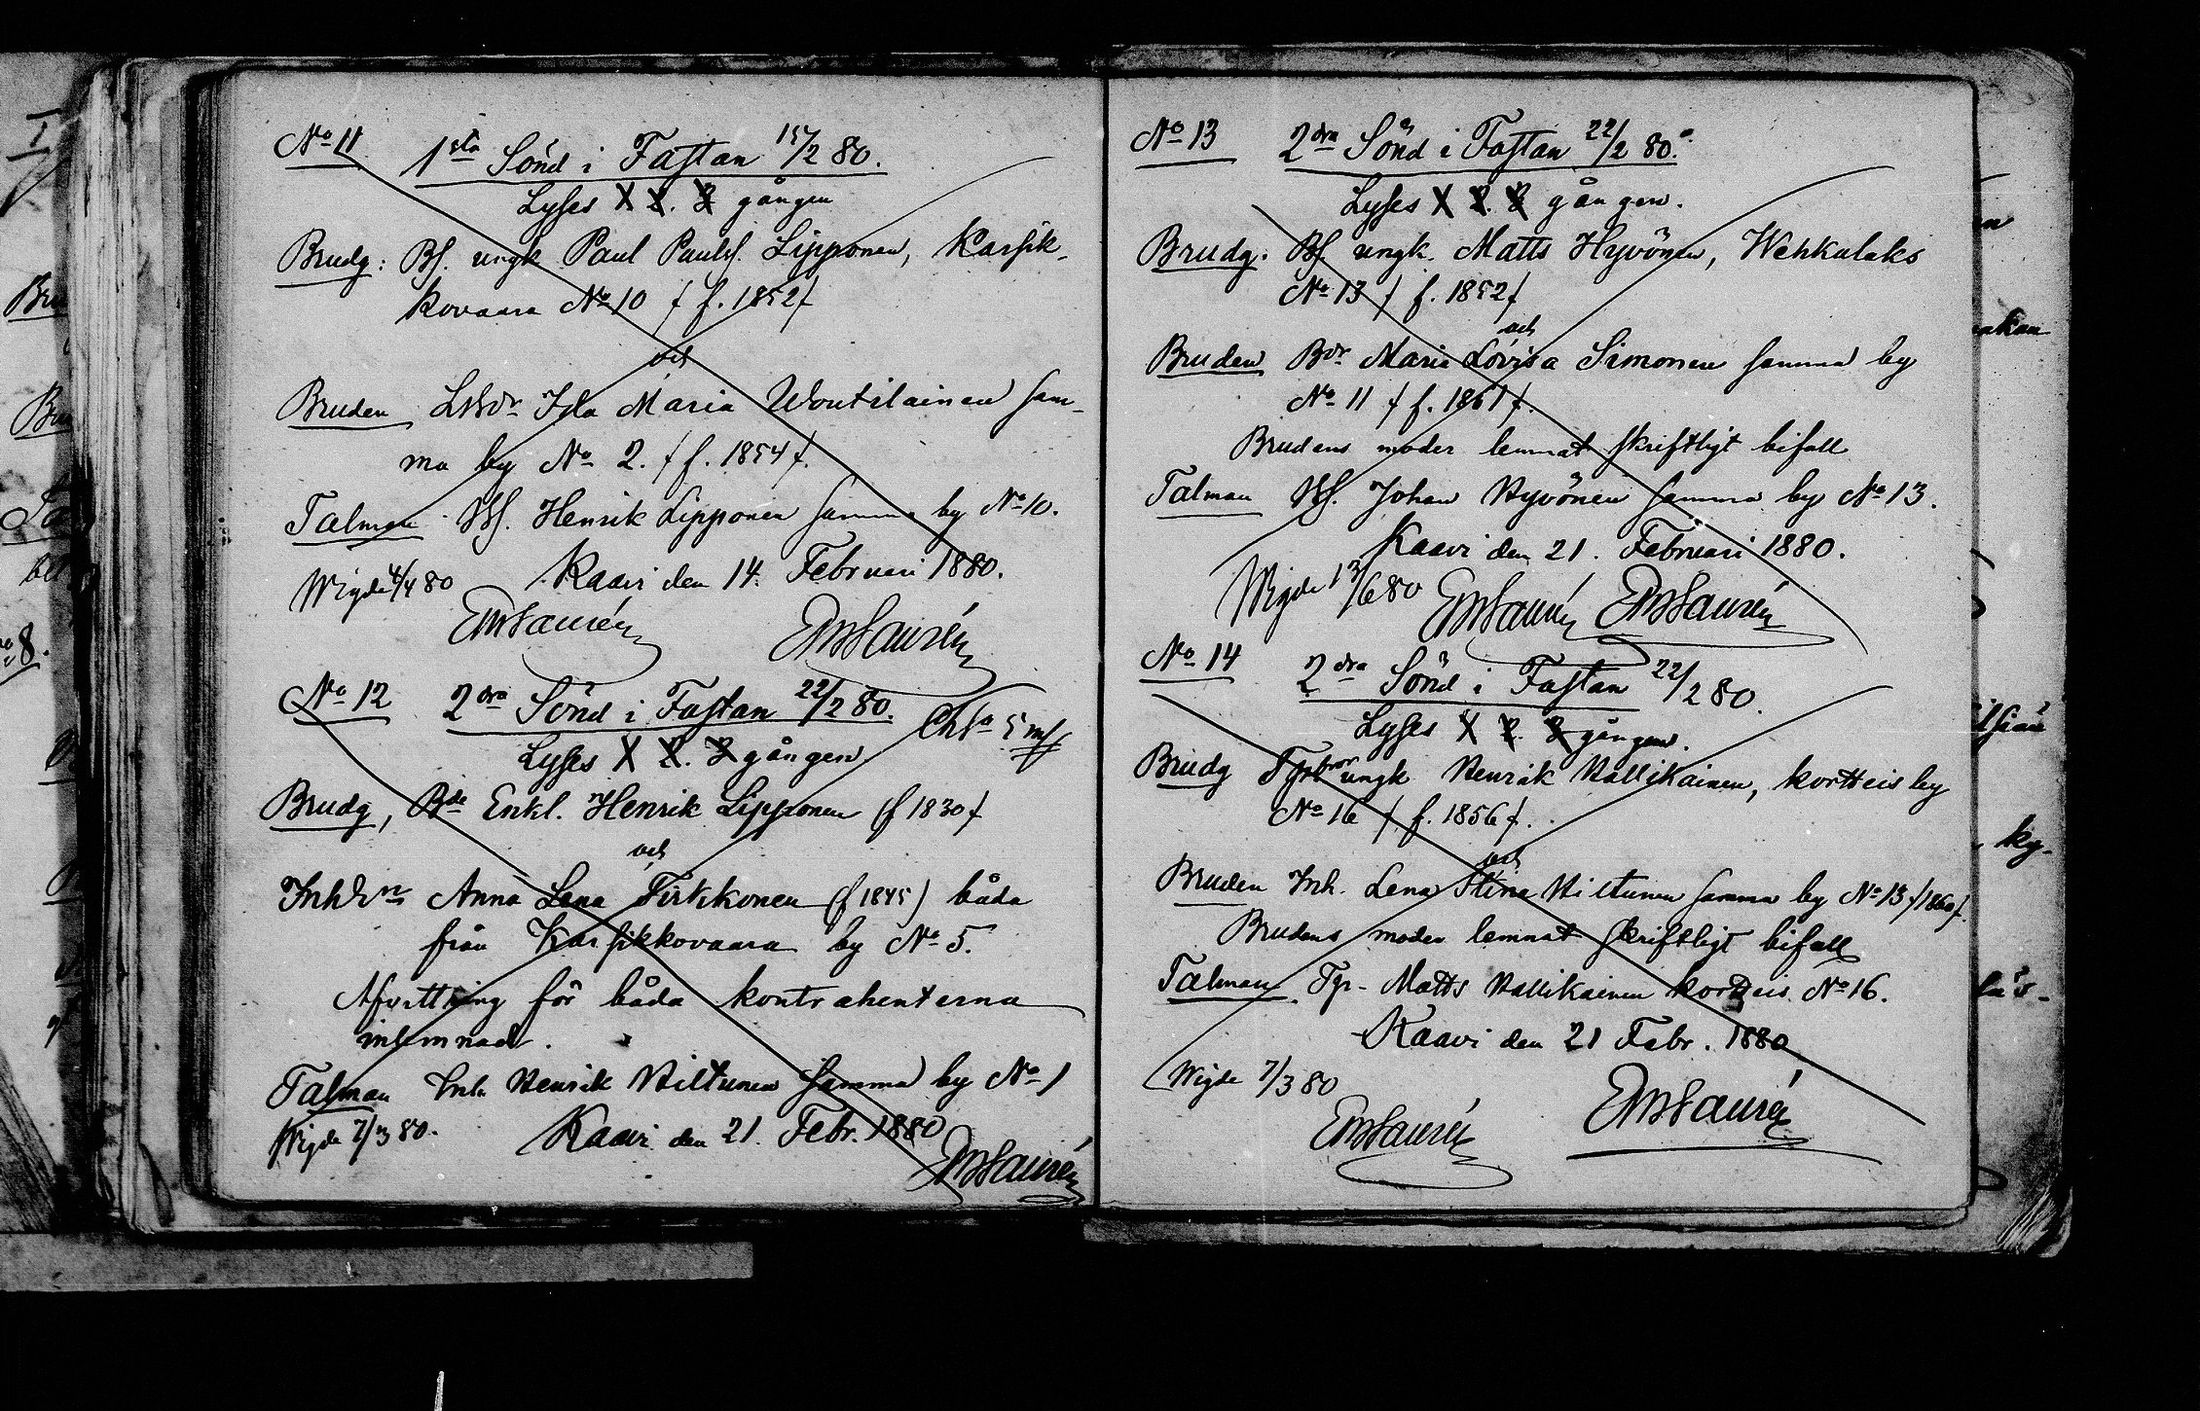 No 11 1sta Sönd i Fastan 15/2 80.
Lyses 1 2. 3 gången
Brudg: Bs. ungk Paul Paulss. Lipponen, Karsik-
kovaara No 10 / f. 1852 /
och
Bruden Ida Maria Woutilainen sam-
ma by No 2. / f. 1854 /.
Talman Henrik Lipponen samma by No 10.
Kaavi den 14. Februari 1880.
Wigde 4/4 80
EMSaurén EMSaurén
No 12 2dra Sönd i Fastan 22/2 80.
5 mk
Lyses 1 2. 3 gången
Brudg, Bde Enkl. Henrik Lipponen (f 1830 /
och
Anna Lena Tirkkonen (f 1845) båda
från Karsikkovaara by No 5.
Afvittring för båda kontrahenterna
inlemnad.
Talman Inh. Henrik Hiltunen samma by No 1
Wigde 7/3 80. Kaavi den 21. Febr. 1880
EMSaurén
No 13 2dra Sönd i Fastan 22/2 80.
Lyses 1 2. 3 gången.
Brudg: Bs. ungk. Matts Hyvönen, Wehkalaks
No 13 / f. 1852 /
och
Bruden Bdr Maria Lovisa Simonen samma by
No 11 / f. 1861 /.
Brudens moder lemnat skriftligt bifall
Talman Johan Hyvönen samma by No 13.
Kaavi den 21. Februari 1880.
Wigde 13/6 80
EMSaurén EMSaurén
No 14 2dra Sönd i Fastan 22/2 80.
Lyses 1 2. 3 gången.
Brudg ungk Henrik Hallikainen, kortteis by
No 16 / f. 1856 /.
och
Bruden Inh. Lena Stina Hiltunen samma by No 13 / 1860 /.
Brudens moder lemnat skriftligt bifall
Talman Tp. Matts Hallikainen kortteis No 16.
Kaavi den 21 Febr. 1880
Wigde 7/3 80
EMSaurén EMSaurén